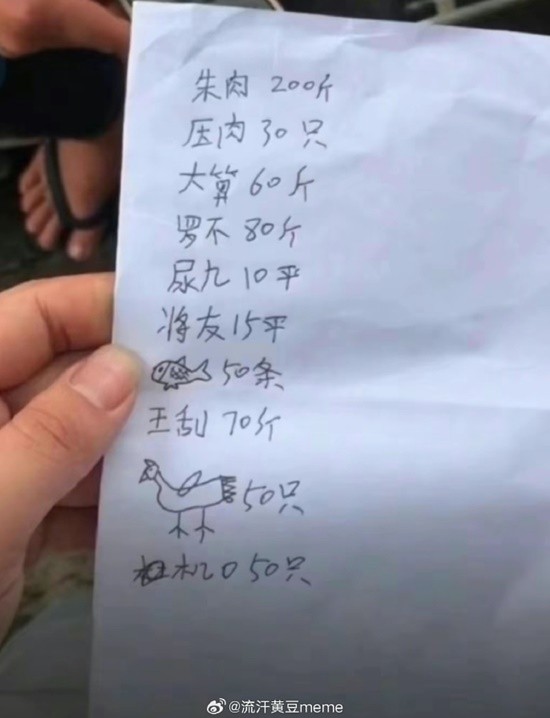 朱肉 200斤
压肉 30只
大算 60斤
罗不 80斤
尿九 10平
将友 15平
50条
王刮 70斤
50只
机 0 50只
@流汗黄豆meme